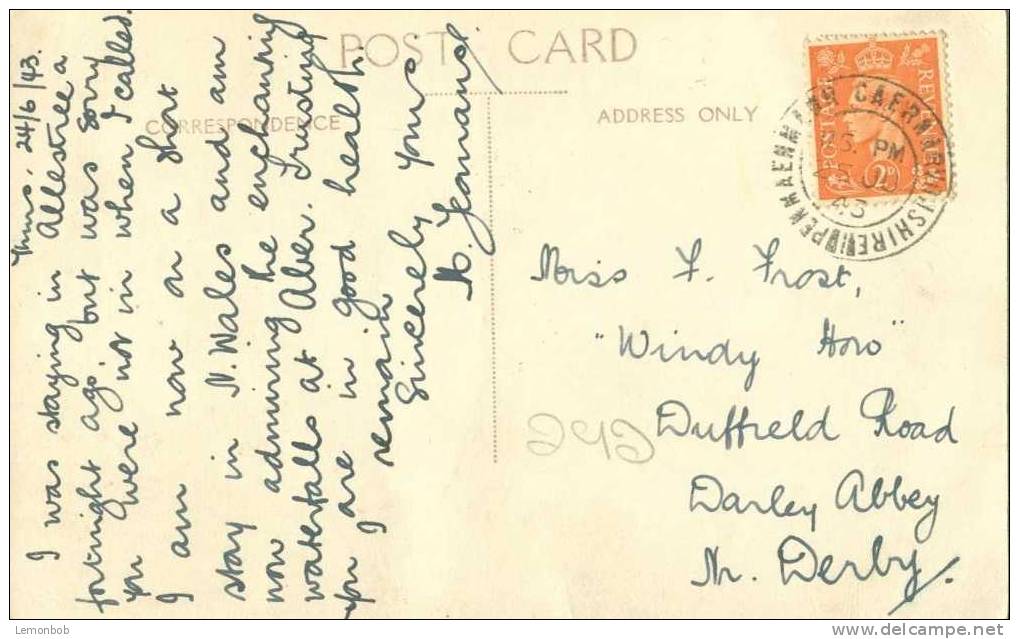 POST CARD
CORRESPONDENCE
ADDRESS ONLY
Thurs. 24/6/43.
I was staying in Allestree a
fortnight ago, but was sorry
you were not in when I called.
I am now on a short
stay in N. Wales and am
now admiring the enchanting
waterfalls at Aber. Trusting
you are in good health
I remain
Sincerely yours
M. Yeomans
POSTAGE
REVENUE
2D
PENMAENMAWR CAERNARVONSHIRE
PM
43
Miss F. Frost,
"Windy How"
Duffield Road
Darley Abbey
Nr. Derby.
Lemonbob
delcampe.net